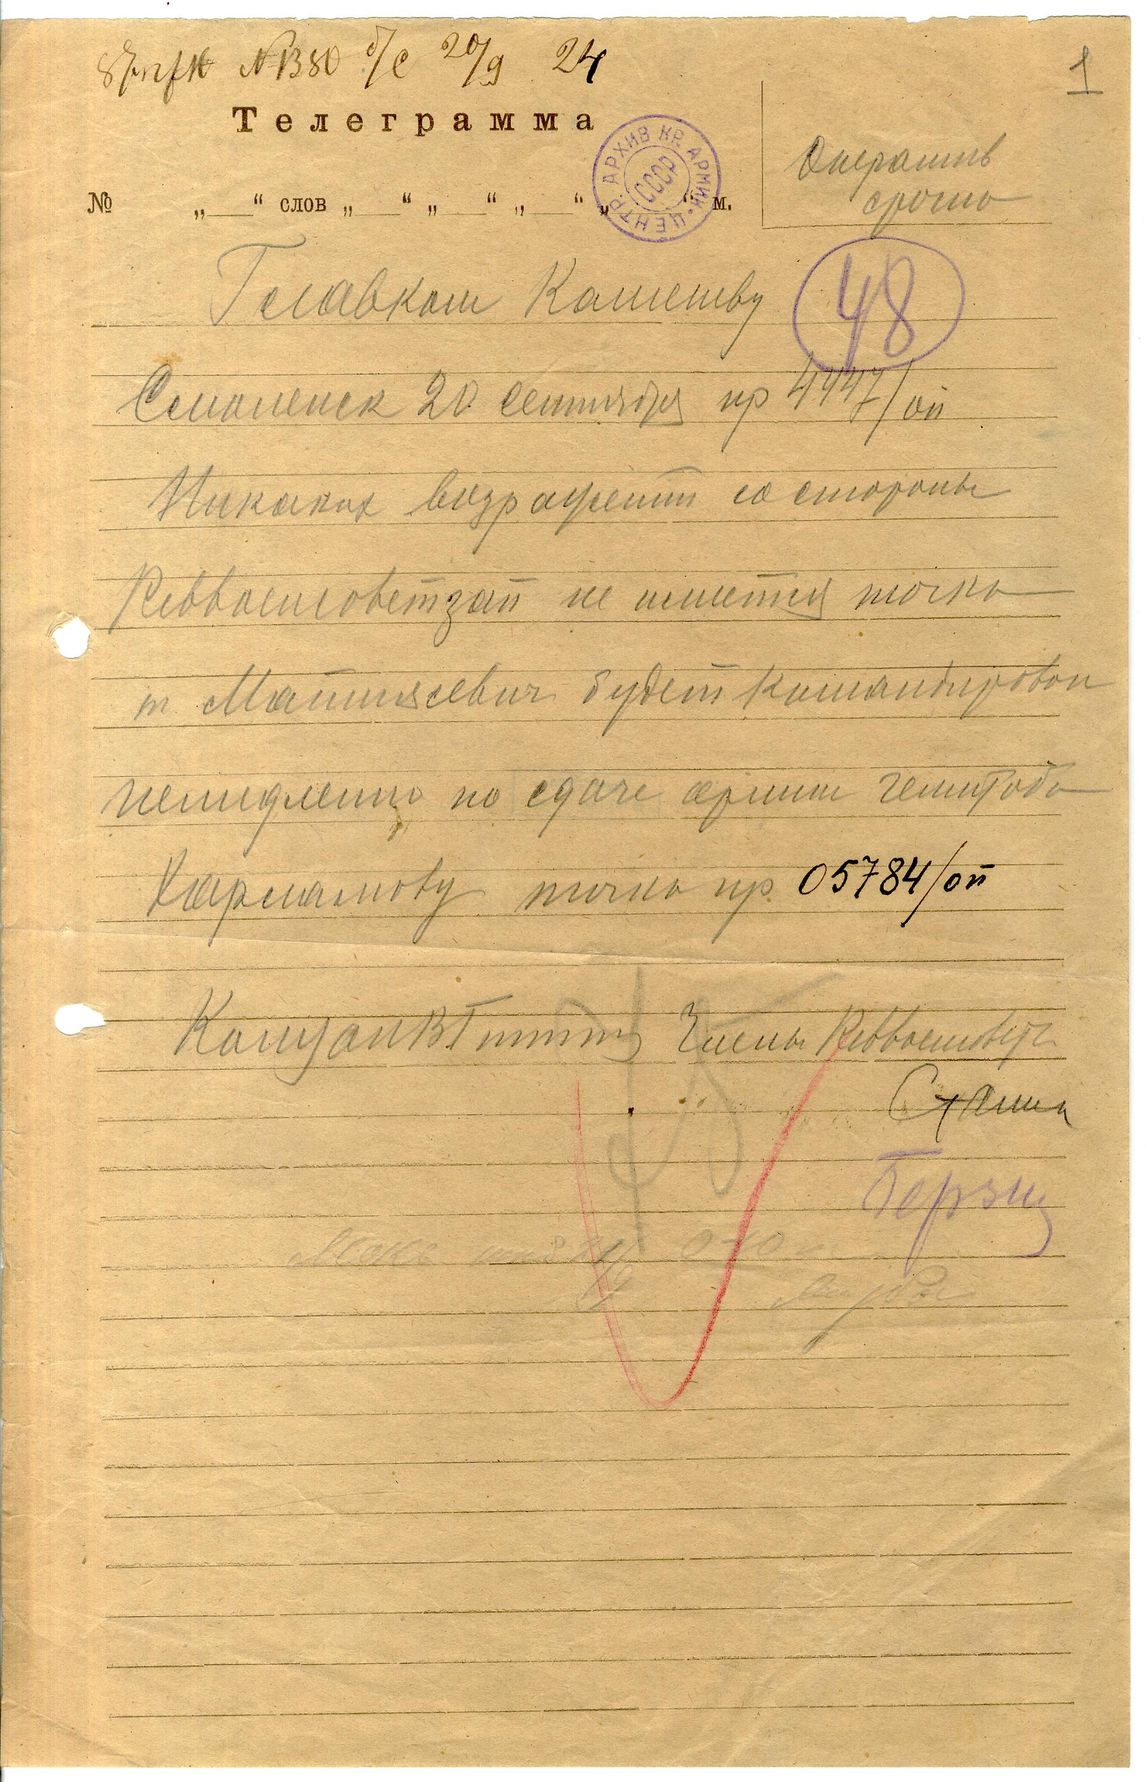 № В80 б/с 20/9 24
1
Телеграмма
ЦЕНТР. АРХИВ КР. АРМИИ
СССР
№ „ “ слов „ “ „ “ „ “ „ “ м.
Оператив
срочно
Главком Каменеву
48
Смоленск 20 сентября нр 4447/оп
Никаких возражений со стороны
Реввоенсоветзап не имеется точка
т Матиясевич будет командирован
немедленно по сдаче армии генштаба
Харламову точка нр 05784/оп
Командзап Гиттис Члены Реввоенсовета
Берзин